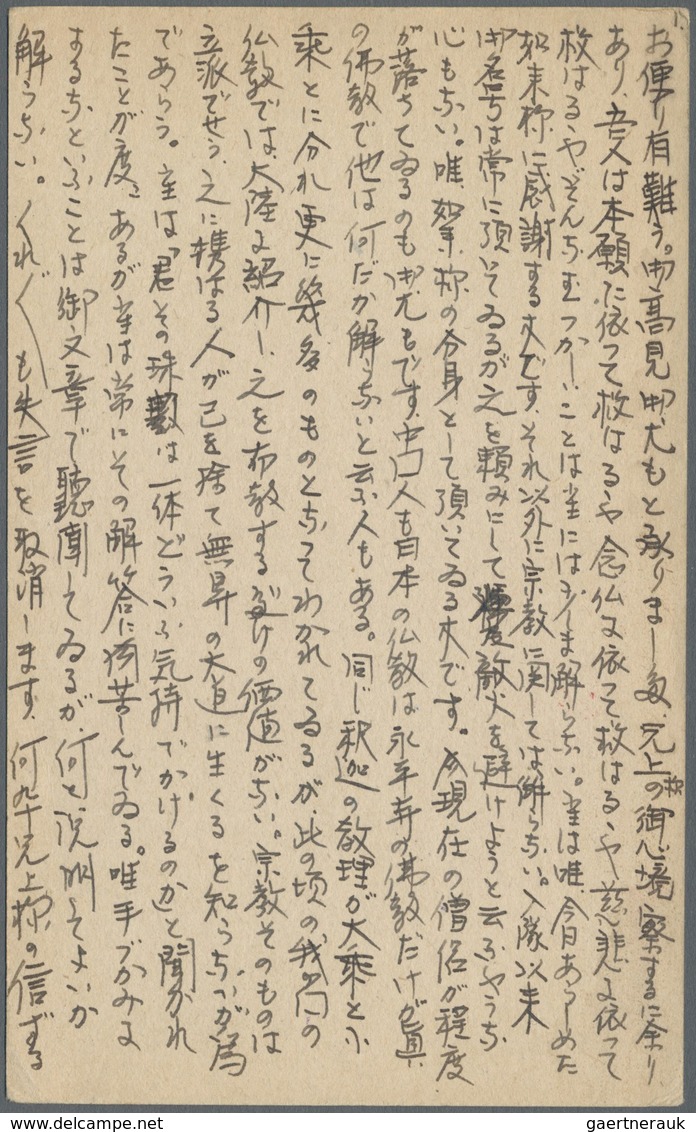 お便り有難う。御高見御尤もと承りました。兄上様の御心境察するに余り
あり、吾人は本願に依って救はるゝや念仏に依って救はるゝや慈悲に依って
救はるゝやぞんなむつかしいことは生には少しも解らない。生は唯今日あらしめた
如来様に感謝する丈です、それ以外に宗教に関しては解らない。入隊以来
御名号は常に頂いてゐるが之を頼みにして敵火を避けようと云ふやうな
心もない。唯如来様の分身として頂いてゐる丈です。現在の僧侶が程度
が落ちてゐるのも御尤もです、中国人も日本の仏教は永平寺の佛教だけが真
の佛教で他は何だか解らないと云ふ人もある。同じ釈迦の教理が大乘と小
乘とに分れ更に幾多のものとなってわかれてゐるが、此の頃の我々の
仏教では、大陸に紹介し之を布教する丈けの価値がない。宗教そのものは
立派でせう、之に携はる人が己を捨て無昇の大道に生くるを知らないが為
であらう。生は「君その珠数は一体どういふ気持でかけるのか」と聞かれ
たことが度々あるが生は常にその解答に苦しんでゐる。唯手づかみに
するなといふことは御文章で聴聞してゐるが、何と説明してよいか
解らない。くれ／″＼も失言を取消します、何卒兄上様の信ずる
gaertnerauk @ www.delcampe.net